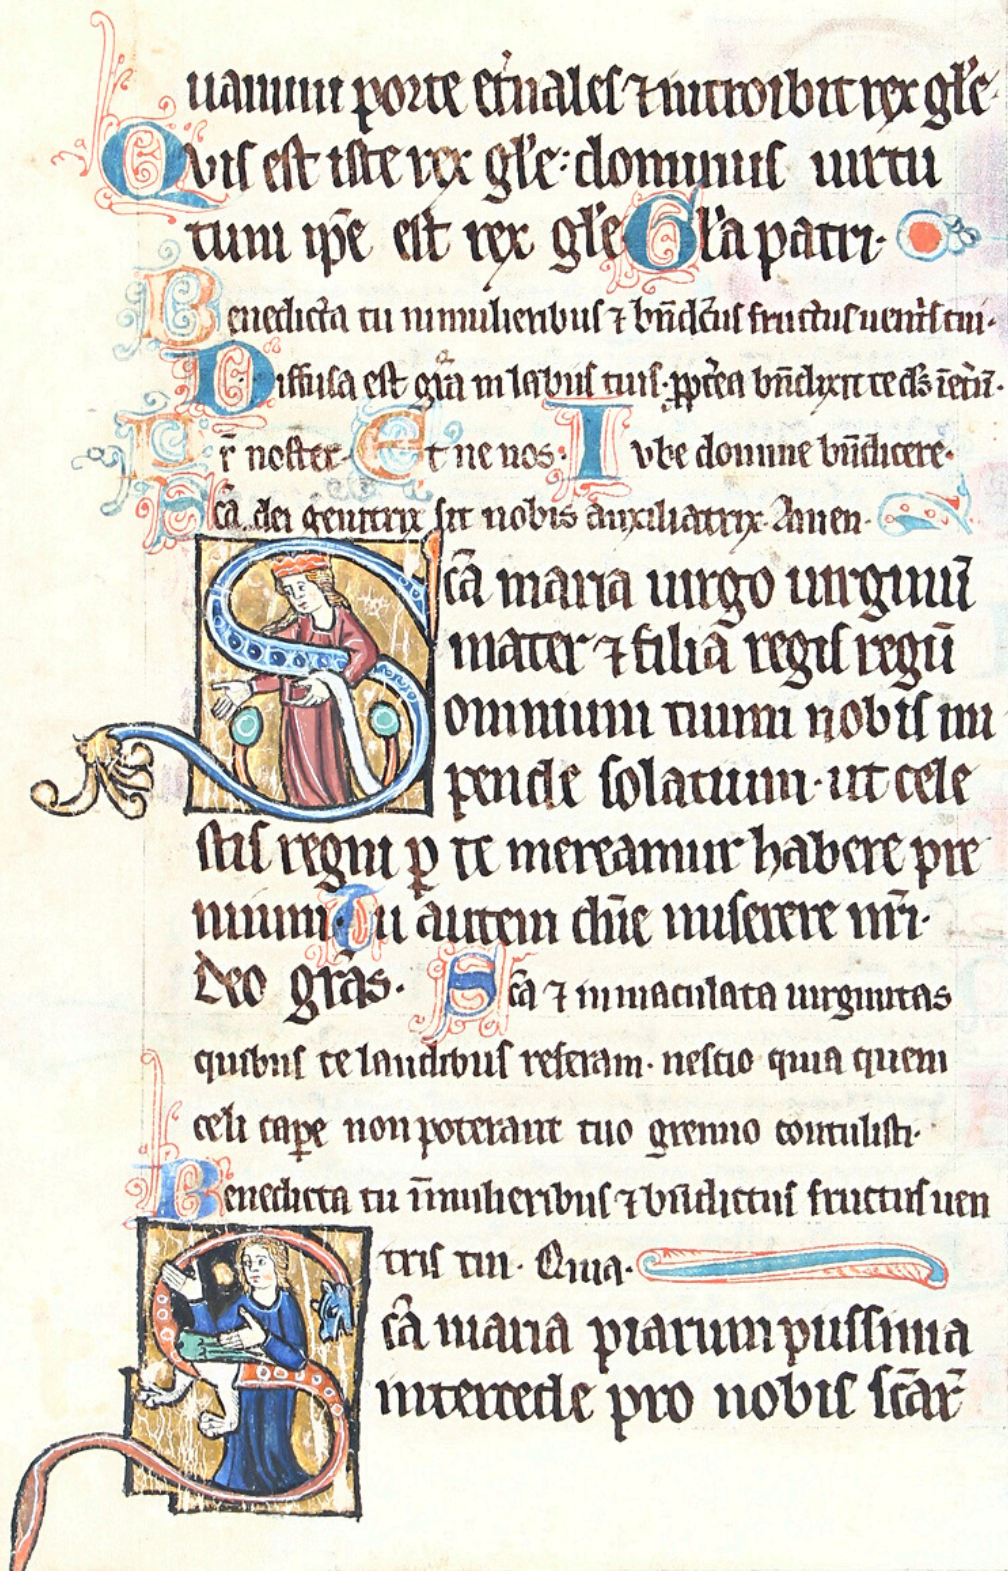 uamini porte et̾nales ⁊ introibit rex gl̾e·
Quis est iste rex gl̾e: dominus uirtu
tum ip̄e est rex gl̾e Gl̾a patri·
Benedicta tu in mulieribus ⁊ bn̄dc̄us fructus uent̾s tui·
Diffusa est gr̄a in labiis tuis· ꝓpt̾ea bn̄dixit te ds̄ īet̾nū·
Pr̄ noster· Et ne nos· Iube domine bn̄dicere·
Sc̄a dei genitrix sit nobis auxiliatrix. Amen·
Sc̄a maria uirgo uirginū
mater ⁊ filia regis regū
omnium tuum nobis im
pende solatium· ut cele
stis regni ꝑ te mereamur habere pre
mium Tu autem dn̄e miserere nr̄i·
Deo gr̄as· Sc̄a ⁊ inmaculata uirginitas
quibus te laudibus referam· nescio quia quem
celi caꝑe non poterant tuo gremio contulisti·
Benedicta tu īmulieribus ⁊ bn̄dictus fructus uen
tris tui· Quia·
Sc̄a maria piarum piissima
intercede pro nobis sc̄ar̄